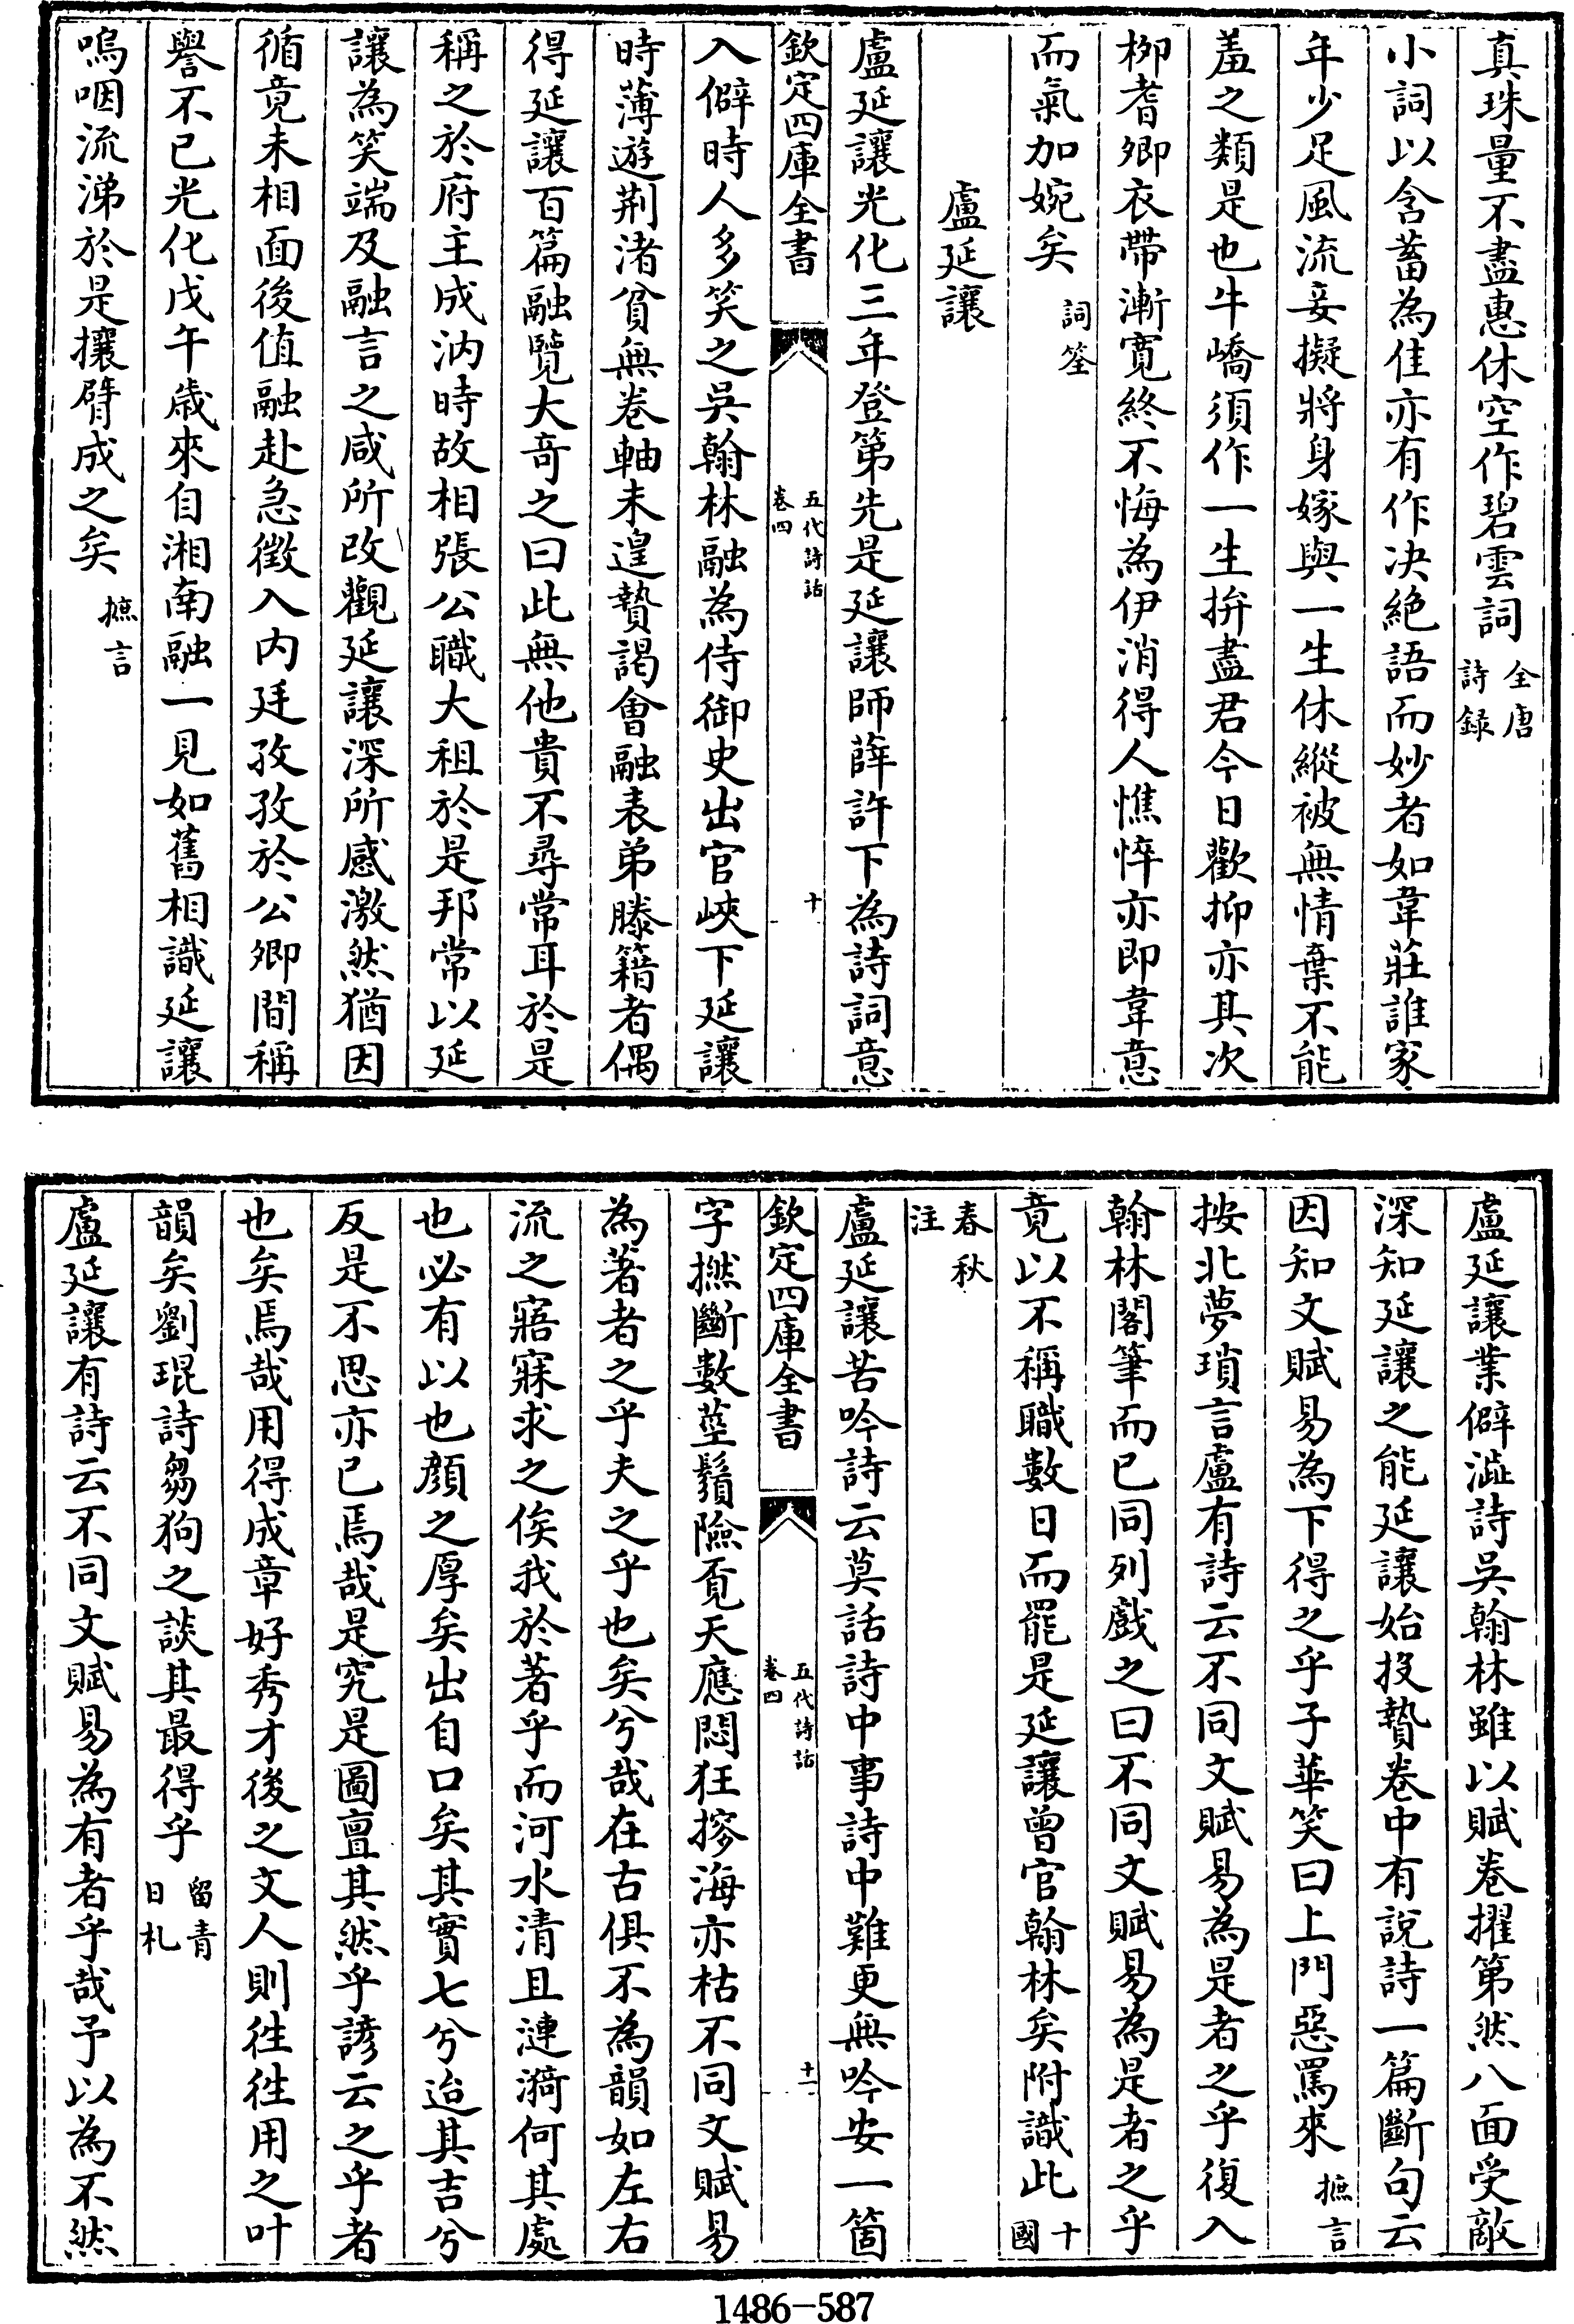 真珠量不盡惠休空作碧雲詞全唐詩録
小詞以含蓄為佳亦有作决絶語而妙者如韋莊誰家
年少足風流妾擬將身嫁與一生休縱被無情棄不能
羞之類是也牛嶠須作一生拚盡君今日歡抑亦其次
栁耆卿衣帶漸寛終不悔為伊消得人憔悴亦即韋意
而氣加婉矣詞筌
盧延讓
盧延讓光化三年登第先是延讓師薛許下為詩詞意
欽定四庫全書 五代詩話 卷四 十
入僻時人多笑之吳翰林融為侍御史出官峽下延讓
時薄遊荆渚貧無卷軸未遑贄謁會融表弟滕籍者偶
得延讓百篇融覽大竒之曰此無他貴不尋常耳於是
稱之於府主成汭時故相張公職大租於是邦常以延
讓為笑端及融言之咸所改觀延讓深所感激然猶因
循竟未相面後值融赴急徵入内廷孜孜於公卿間稱
譽不已光化戊午歲來自湘南融一見如舊相識延讓
嗚咽流涕於是攘臂成之矣摭言
盧延讓業僻澁詩吳翰林雖以賦卷擢第然八面受敵
深知延讓之能延讓始投贄卷中有說詩一篇斷句云
因知文賦易為下得之乎子華笑曰上門惡罵來摭言
按北夢瑣言盧有詩云不同文賦易為是者之乎復入
翰林閣筆而已同列戲之曰不同文賦易為是者之乎
竟以不稱職數日而罷是延讓曾官翰林矣附識此十國
春秋注
盧延讓苦吟詩云莫話詩中事詩中難更無吟安一箇
欽定四庫全書 五代詩話 卷四 十一
字撚斷數莖鬚險覓天應悶狂搜海亦枯不同文賦易
為著者之乎夫之乎也矣兮哉在古俱不為韻如左右
流之寤寐求之俟我於著乎而河水清且漣漪何其處
也必有以也顔之厚矣出自口矣其實七兮迨其吉兮
反是不思亦已焉哉是究是圖亶其然乎諺云之乎者
也矣焉哉用得成章好秀才後之文人則徃徃用之叶
韻矣劉琨詩芻狗之談其最得乎留青日札
盧延讓有詩云不同文賦易為有者乎哉予以為不然
1486-587